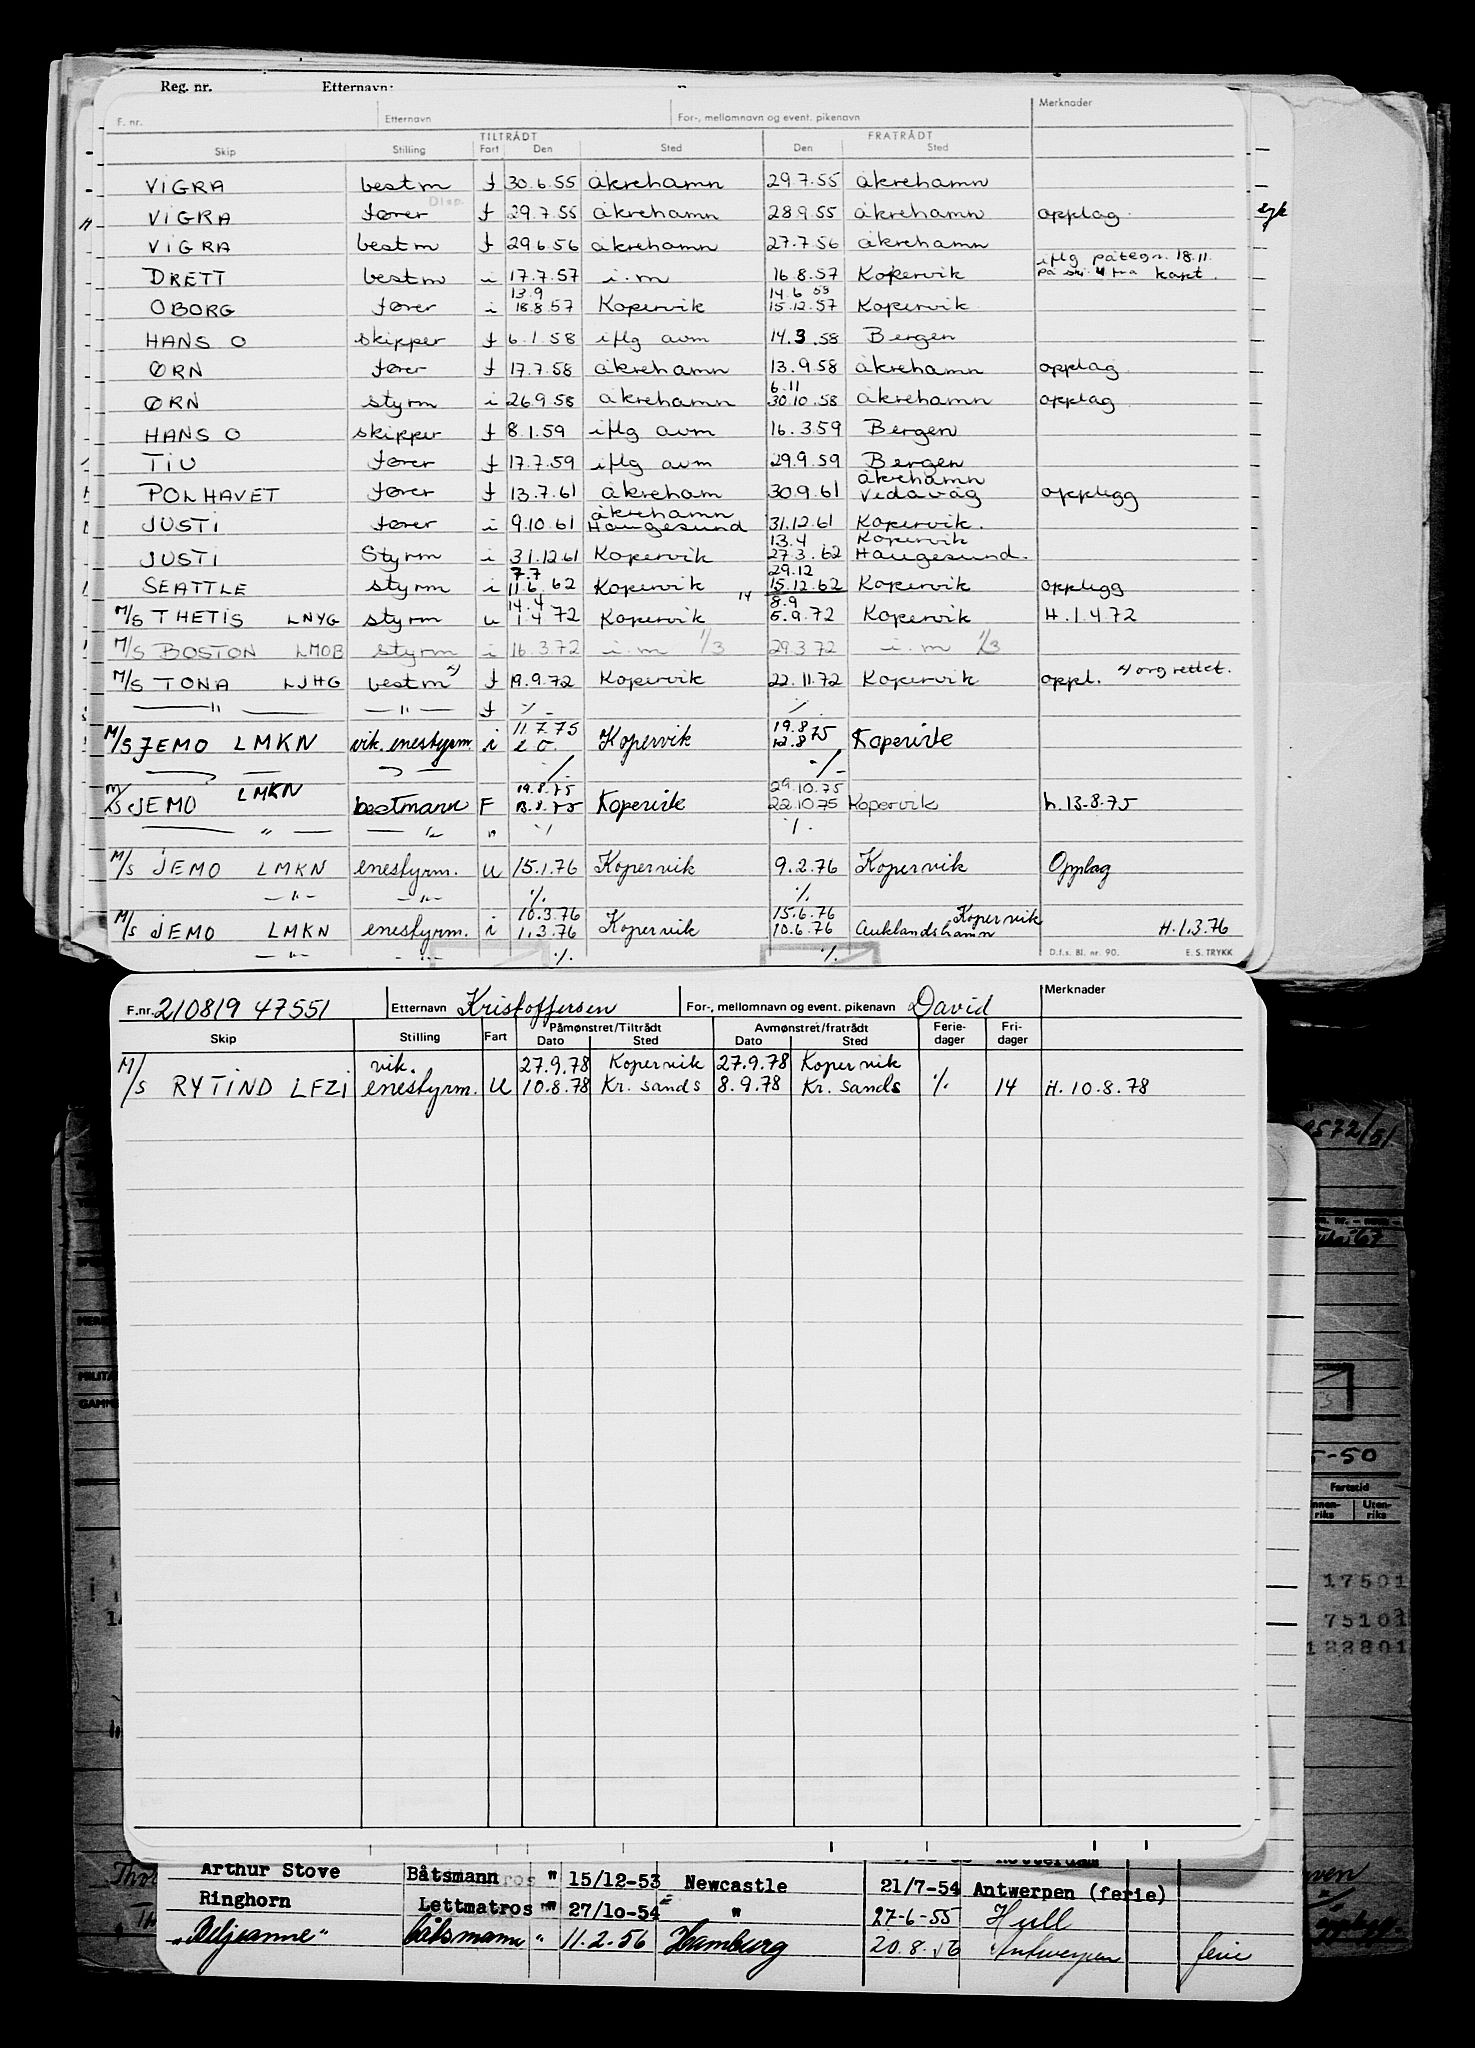 Reg. nr. Etternavn:
F. nr. Etternavn For-, mellomnavn og event. pikenavn Merknader
TILTRÅDT FRATRÅDT
Skip Stilling Fart Den Sted Den Sted
VIGRA bestm f 30.6.55 åkrehamn 29.7.55 åkrehamn
VIGRA fører f 29.7.55 åkrehamn 28.9.55 åkrehamn opplag
VIGRA bestm f 29.6.56 åkrehamn 27.7.56 åkrehamn
iflg påtegn. 18.11.
DRETT bestm i 17.7.57 i.m 16.8.57 Kopervik på kort.
13.9 14.6
OBORG fører i 18.8.57 Kopervik 15.12.57 Kopervik
HANS O skipper f 6.1.58 iflg avm 14.3.58 Bergen
ØRN fører f 17.7.58 åkrehamn 13.9.58 åkrehamn opplag
6.11
ØRN styrm i 26.9.58 åkrehamn 30.10.58 åkrehamn opplag
HANS O skipper f 8.1.59 iflg avm 16.3.59 Bergen
TIU fører f 17.7.59 iflg avm 29.9.59 Bergen
åkrehamn
POLHAVET fører f 13.7.61 åkreham 30.9.61 Vedavåg opplegg
åkrehamn
JUSTI fører i 9.10.61 Haugesund 31.12.61 Kopervik.
13.4 Kopervik
JUSTI Styrm i 31.12.61 Kopervik 27.3.62 Haugesund.
7.7 29.12
SEATTLE styrm i 11.6.62 Kopervik 15.12.62 Kopervik opplegg
14.4 14 8.9
M/S THETIS LNYG styrm u 1.4 72 Kopervik 5.9.72 Kopervik H.1.4.72
M/S BOSTON LMOB styrm i 16.3.72 i.m 1/3 29.3.72 i.m 1/3
M/S TONA LJHG bestm x) f 19.9.72 Kopervik 22.11.72 Kopervik oppl. x) org rettet.
— " — — " — f ./. ./.
11.7.75 19.8.75
M/S JEMO LMKN vik. enestyrm. i Kopervik 12.8 Kopervik
./. ./.
19.8.75 29.10.75
M/S JEMO LMKN bestmann F 13.8.75 Kopervik 22.10.75 Kopervik h.13-8.75
— " — — " — " ./. ./.
M/S JEMO LMKN enestyrm. u 15.1.76 Kopervik 9.2.76 Kopervik Opplag
— " — — " — ./. ./.
10.3.76 15.6.76 Kopervik
M/S JEMO LMKN enestyrm. i 1.3.76 Kopervik 10.6.76 Auklandshamn H.1.3.76
— " — — " — ./. ./. D.f.s. Bl. nr. 90. E. S. TRYKK
F.nr. 210819 47551 Etternavn Kristoffersen For-, mellomnavn og event. pikenavn David Merknader
Skip Stilling Fart Påmønstret/Tiltrådt Avmønstret/fratrådt Ferie-dager Fri-dager
Dato Sted Dato Sted
vik. 27.9.78 Kopervik 27.9.78 Kopervik
M/S RYTIND LFZI enestyrm. u 10.8.78 Kr. sands 8.9.78 Kr. sands ./. 14 H. 10.8.78
2572/51
5-50
Fartstid
Innen-riks Uten-riks
17501
75101
122801
Arthur Stove Båtsmann " 15/12-53 Newcastle 21/7-54 Antwerpen (ferie)
Ringhorn Lettmatros " 27/10-54 " 27-6-55 Hull
"Beljeanne" båtsmann " 11.2.56 Hamburg 20.8.56 Antwerpen ferie